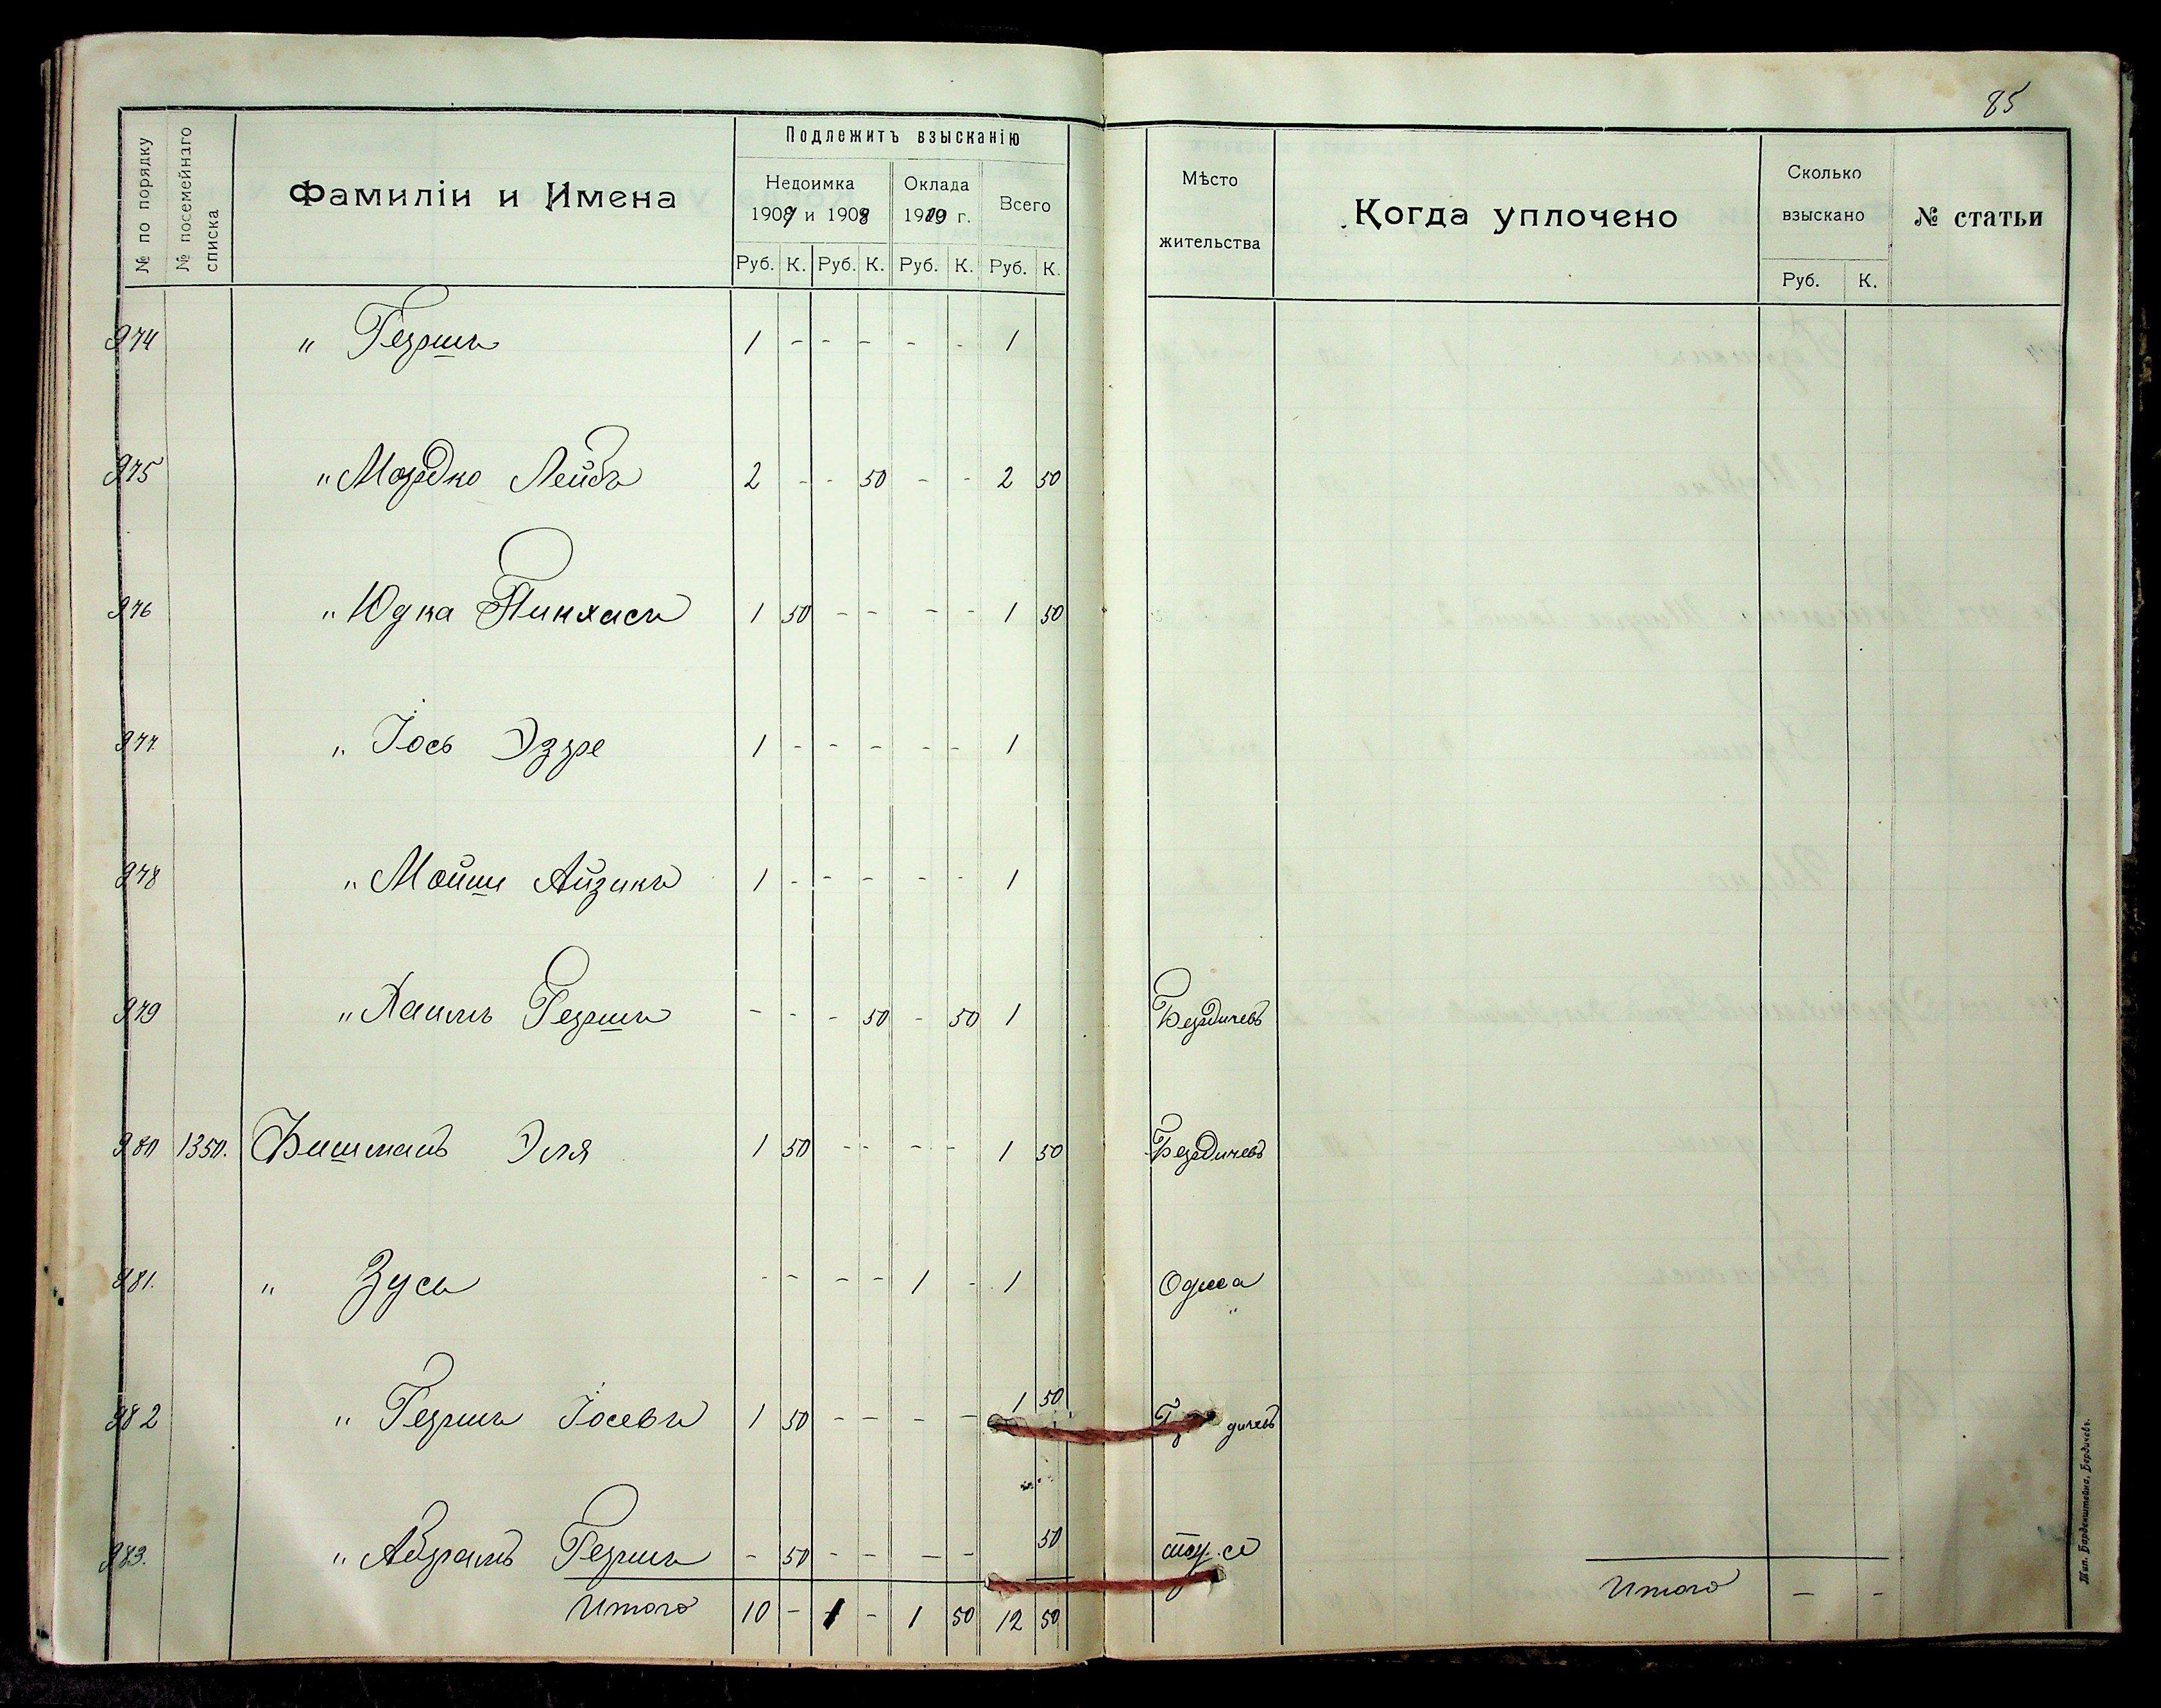 85
№ по порядку
№ посемейнаго списка
Фамиліи и Имена
Подлежитъ взысканію
Недоимка
1907 и 1908
Оклада
1909 г.
Всего
Руб. К. Руб. К. Руб. К. Руб. К.
Мѣсто
жительства
Когда уплочено
Сколько
взыскано
Руб. К.
№ статьи
974 " Гершъ 1 - - - - - 1
975 " Мордко Лейбъ 2 - - 50 - - 2 50
976 " Юдка Пинхасъ 1 50 - - - - 1 50
977 " Іось Эзре 1 - - - - - 1
978 " Мойше Айзикъ 1 - - - - - 1
979 " Хаимъ Гершъ - - - 50 - 50 1 Бердичевъ
980 1350. Фишманъ Эля 1 50 - - - - 1 50 Бердичевъ
981. " Зусь - - - - 1 - 1 Одесса
982 " Гершъ Іосевъ 1 50 - - - - 1 50 дичевъ
983. " Абрамъ Гершъ - 50 - - - - 50
Итого 10 - 1 - 1 50 12 50
Итого - -
Тип. Барденштейна, Бердичевъ.